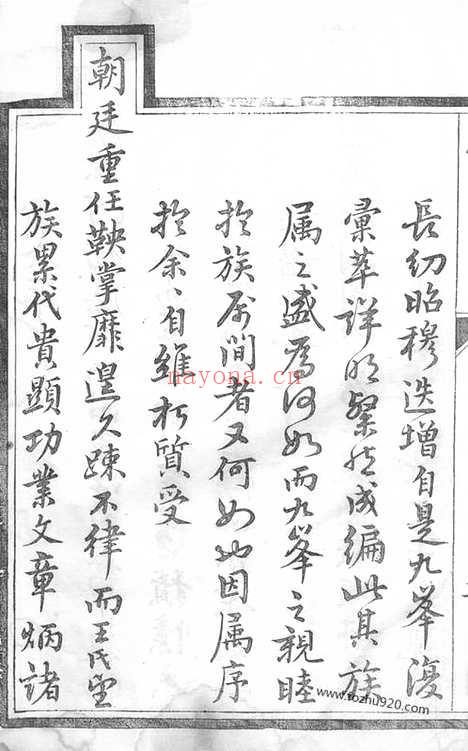 長幼昭穆迭增自是九峯復
彙萃詳明粲然成編此其族
属之盛爲何如而九峯之親睦
於族属間者又何如也因属序
於余、自維朽質受
朝廷重任鞅掌靡遑久疎不律而王氏望
族累代貴顯功業文章炳諸
nayona.cn
www.sozhu920.com